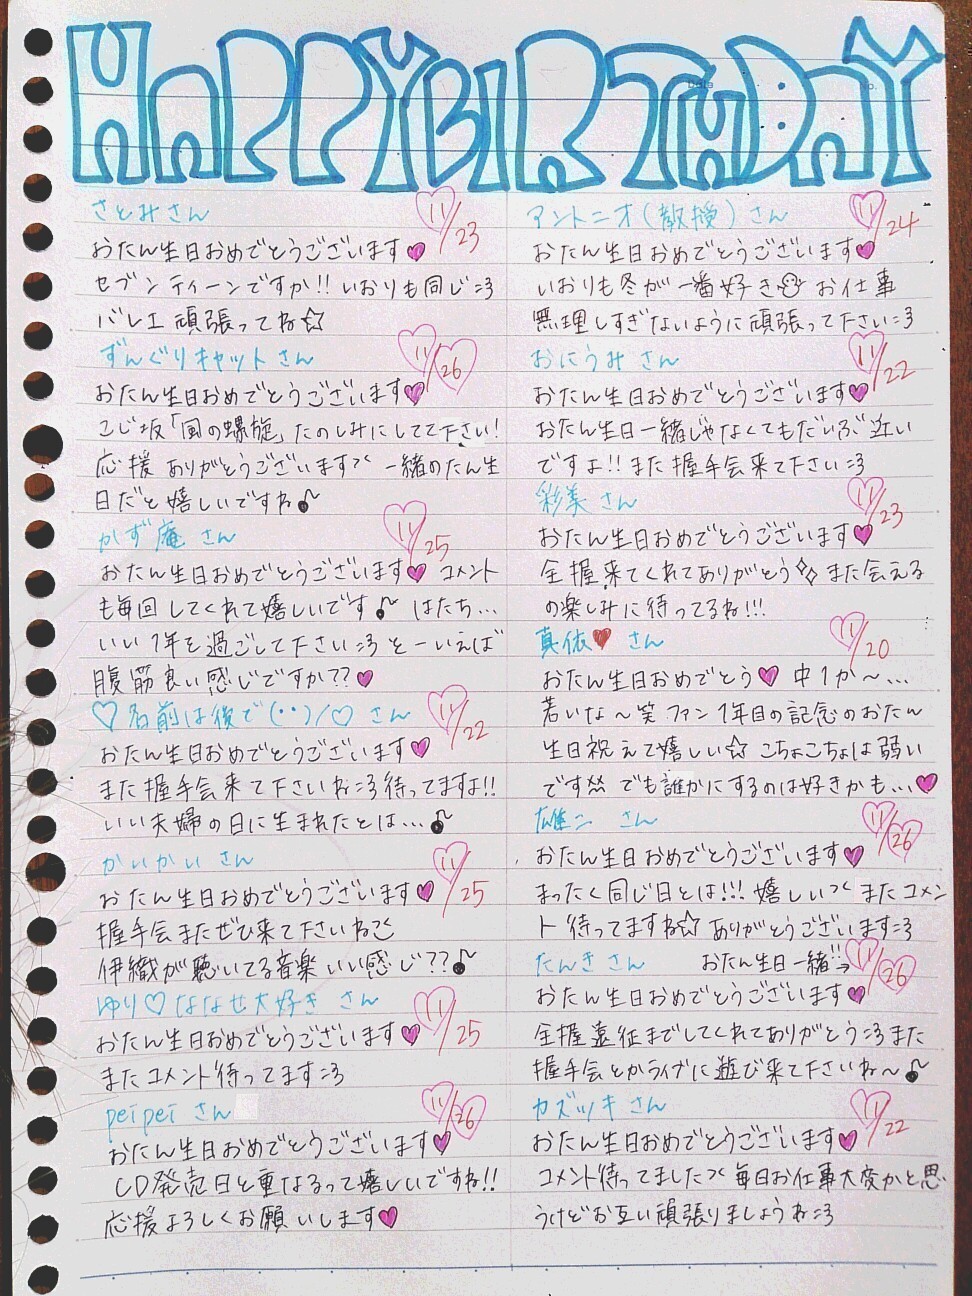 HAPPY BIRTHDAY
さとみさん 11/23
おたん生日おめでとうございます♥
セブンティーンですか!! いおりも同じ=3
バレエ頑張ってね☆
ずんぐりキャットさん 11/26
おたん生日おめでとうございます♥
こじ坂「風の螺旋」たのしみにしてて下さい!
応援ありがとうございます 一緒のたん生
日だと嬉しいですね♪
かず庵さん 11/25
おたん生日おめでとうございます♥ コメント
も毎回してくれて嬉しいです♪ はたち...
いい1年を過ごして下さい=3 とーいえば
腹筋良い感じですか??♥
♡名前は後で(··)/♡さん 11/22
おたん生日おめでとうございます♥
また握手会来て下さいね=3 待ってますよ!!
いい夫婦の日に生まれたとは...♪
かいかいさん 11/25
おたん生日おめでとうございます♥
握手会またぜひ来て下さいね
伊織が聴いてる音楽いい感じ??♪
ゆり♡ななせ大好きさん 11/25
おたん生日おめでとうございます♥
またコメント待ってます=3
peipeiさん 11/26
おたん生日おめでとうございます♥
CD発売日と重なるって嬉しいですね!!
応援よろしくお願いします♥
アントニオ(教授)さん 11/24
おたん生日おめでとうございます♥
いおりも冬が一番好き お仕事
無理しすぎないように頑張って下さい=3
おにうみさん 11/22
おたん生日おめでとうございます♥
おたん生日一緒じゃなくてもだいぶ近い
ですよ!! また握手会来て下さい=3
彩美さん 11/23
おたん生日おめでとうございます♥
全握来てくれてありがとう また会える
の楽しみに待ってるね!!!
真依♥さん 11/20
おたん生日おめでとう♥ 中1か〜...
若いな〜笑 ファン1年目の記念のおたん
生日祝えて嬉しい☆ こちょこちょは弱い
です でも誰かにするのは好きかも...♥
雄二さん 11/26
おたん生日おめでとうございます♥
まったく同じ日とは!!! 嬉しい またコメン
ト待ってますね☆ ありがとうございます=3
たんきさん おたん生日一緒!!→ 11/26
おたん生日おめでとうございます♥
全握遠征までしてくれてありがとう=3 また
握手会とかライブに遊び来て下さいね〜♪
カズツキさん 11/22
おたん生日おめでとうございます♥
コメント待ってました 毎日お仕事大変かと思
うけどお互い頑張りましょうね=3